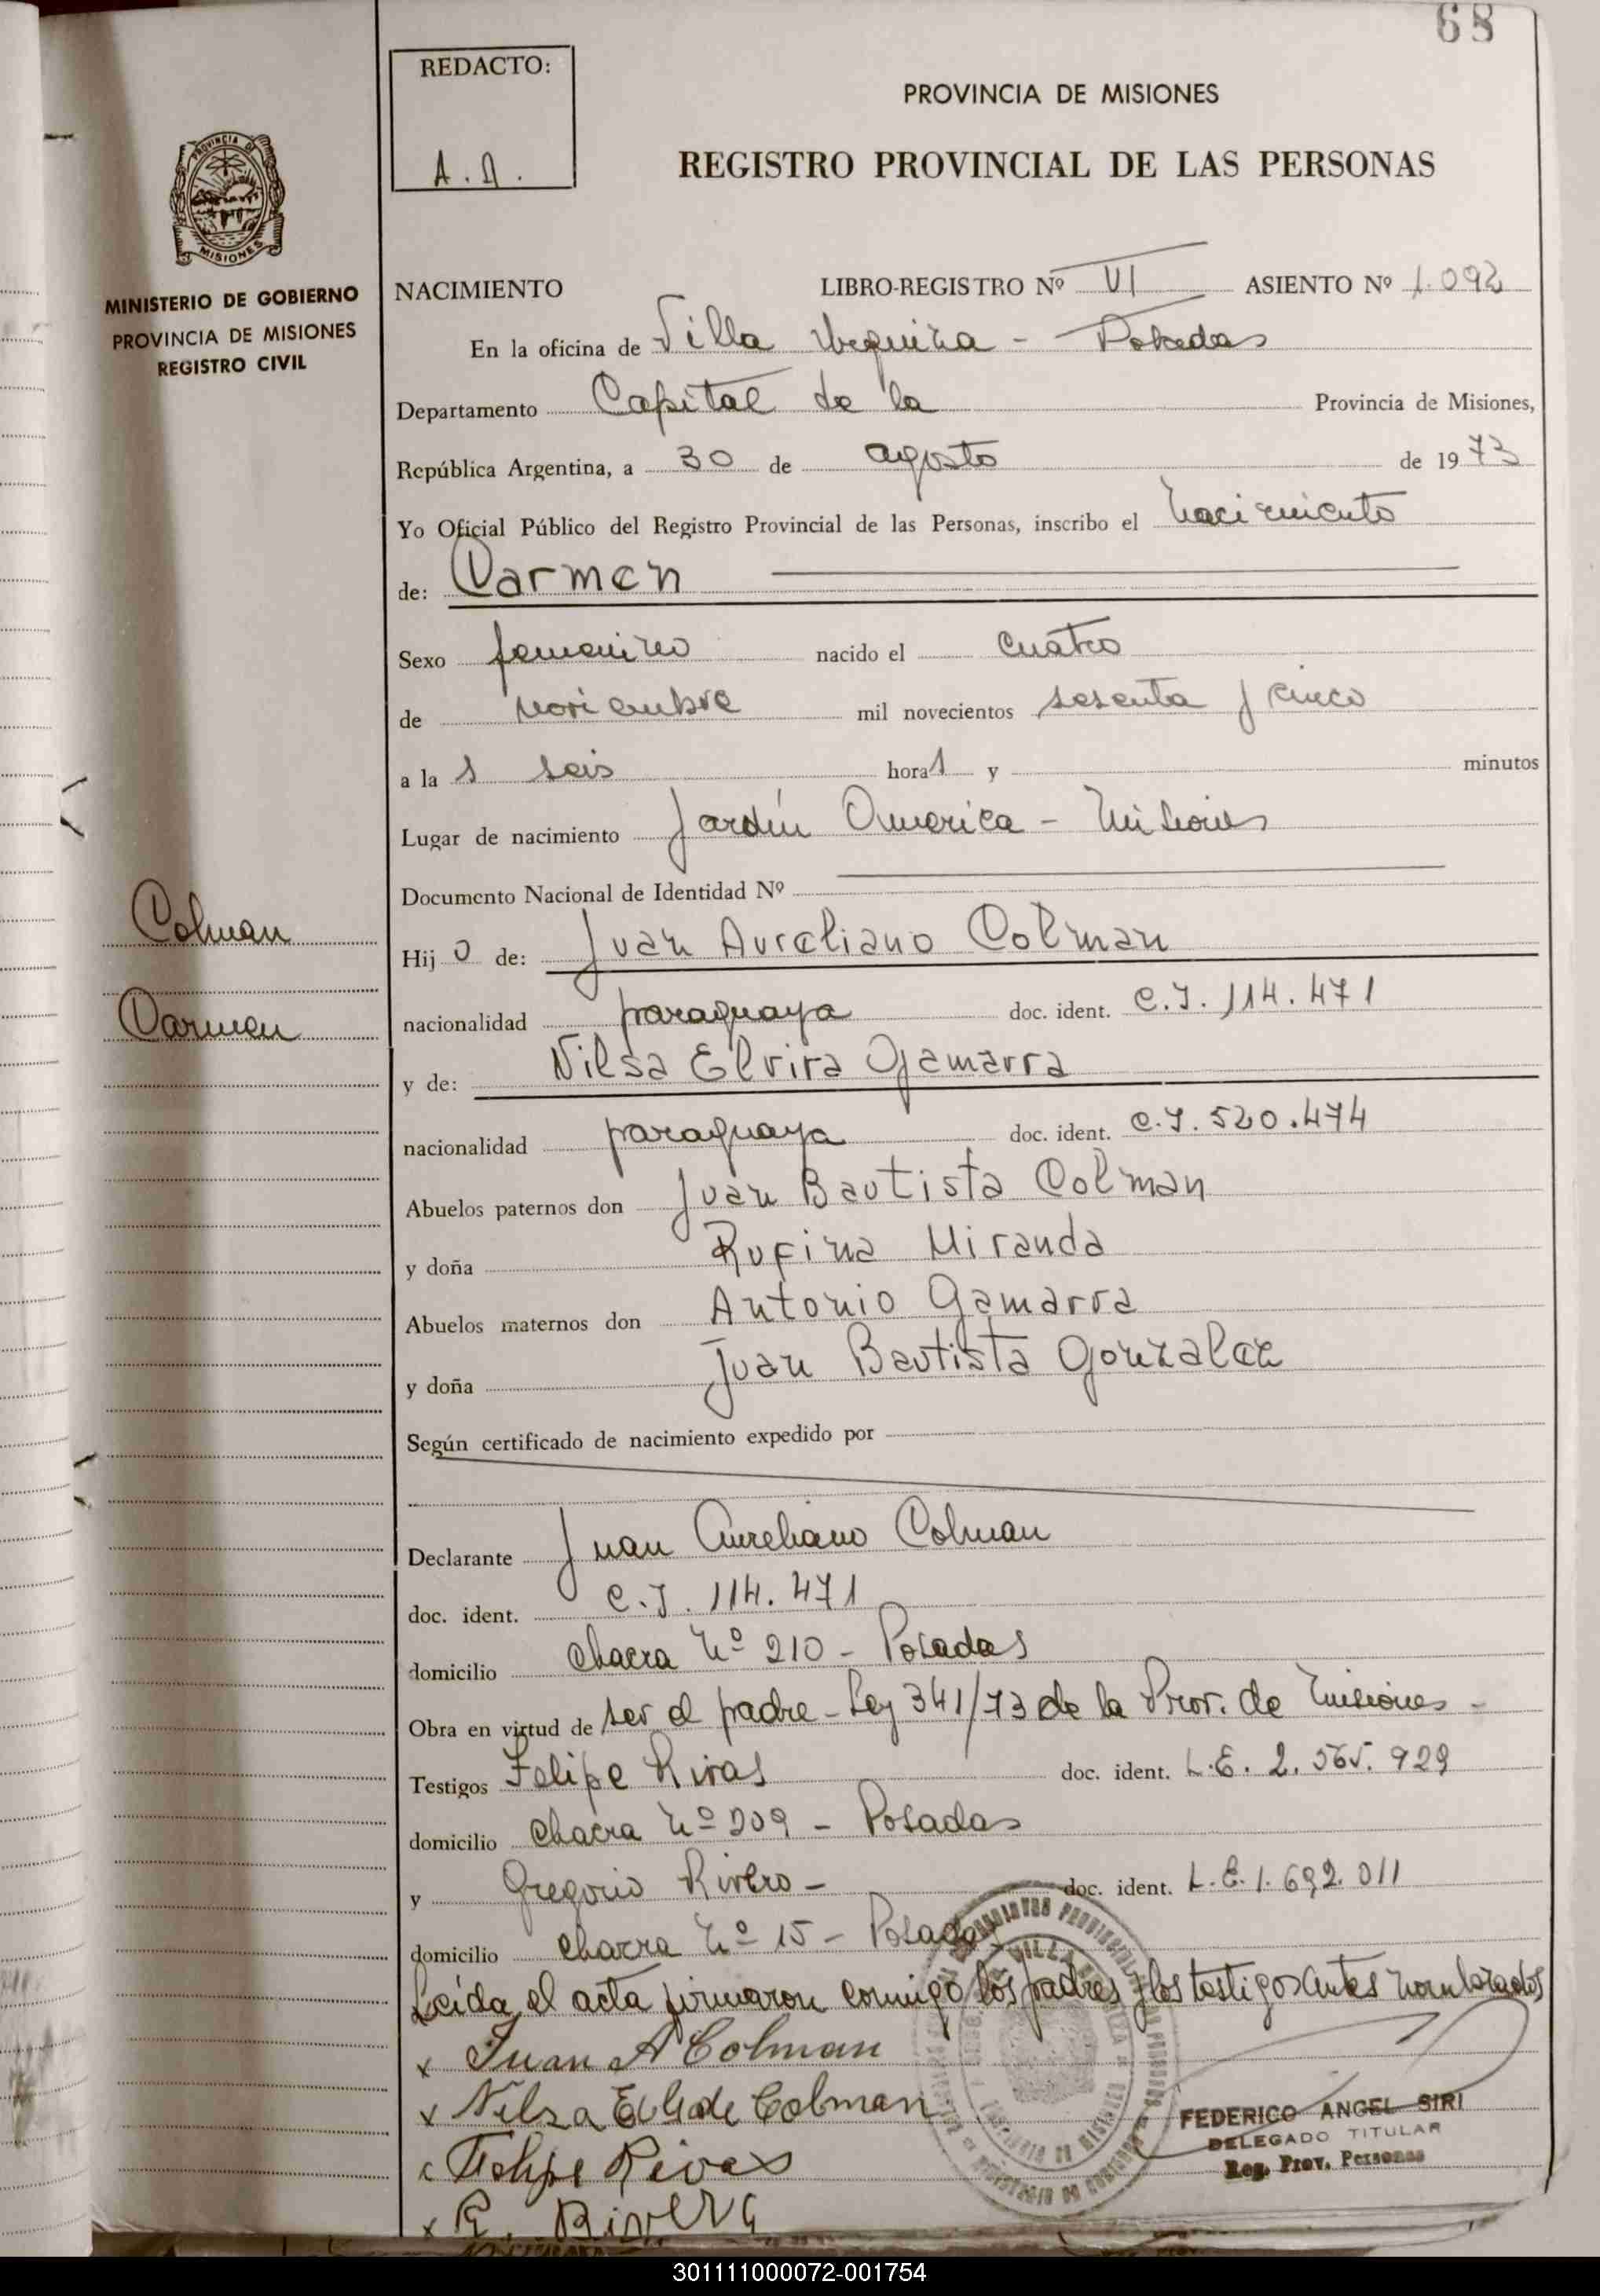 68
REDACTO:
A. A.
PROVINCIA DE MISIONES
REGISTRO PROVINCIAL DE LAS PERSONAS
PROVINCIA DE
MISIONES
MINISTERIO DE GOBIERNO
PROVINCIA DE MISIONES
REGISTRO CIVIL
NACIMIENTO LIBRO-REGISTRO Nº VI ASIENTO Nº 1.092
En la oficina de Villa Urquiza - Posadas
Departamento Capital de la Provincia de Misiones,
República Argentina, a 30 de agosto de 1973
Yo Oficial Público del Registro Provincial de las Personas, inscribo el nacimiento
de: Carmen
Sexo femenino nacido el cuatro
de noviembre mil novecientos sesenta y cinco
a las seis horas y minutos
Lugar de nacimiento Jardín America - Misiones
Documento Nacional de Identidad Nº
Colman
Hijo de: Juan Aureliano Colman
Carmen
nacionalidad paraguaya doc. ident. C.I. 114.471
y de: Nilsa Elvira Gamarra
nacionalidad paraguaya doc. ident. C.I. 520.474
Abuelos paternos don Juan Bautista Colman
y doña Rufina Miranda
Abuelos maternos don Antonio Gamarra
y doña Juan Bautista Gonzalez
Según certificado de nacimiento expedido por
Declarante Juan Aureliano Colman
doc. ident. C.I. 114.471
domicilio chacra Nº 210 - Posadas
Obra en virtud de ser el padre - Ley 341/73 de la Prov. de Misiones -
Testigos Felipe Rivas doc. ident. L.E. 2.565.929
domicilio chacra Nº 209 - Posadas
y Gregorio Rivero - doc. ident. L.E. 1.692.011
domicilio chacra Nº 15 - Posadas
Leída el acta firmaron conmigo los padres y los testigos antes nombrados
x Juan A Colman
x Nilsa E G de Colman
x Felipe Rivas
x G. Rivero
FEDERICO ANGEL SIRI
DELEGADO TITULAR
Reg. Prov. Personas
301111000072-001754